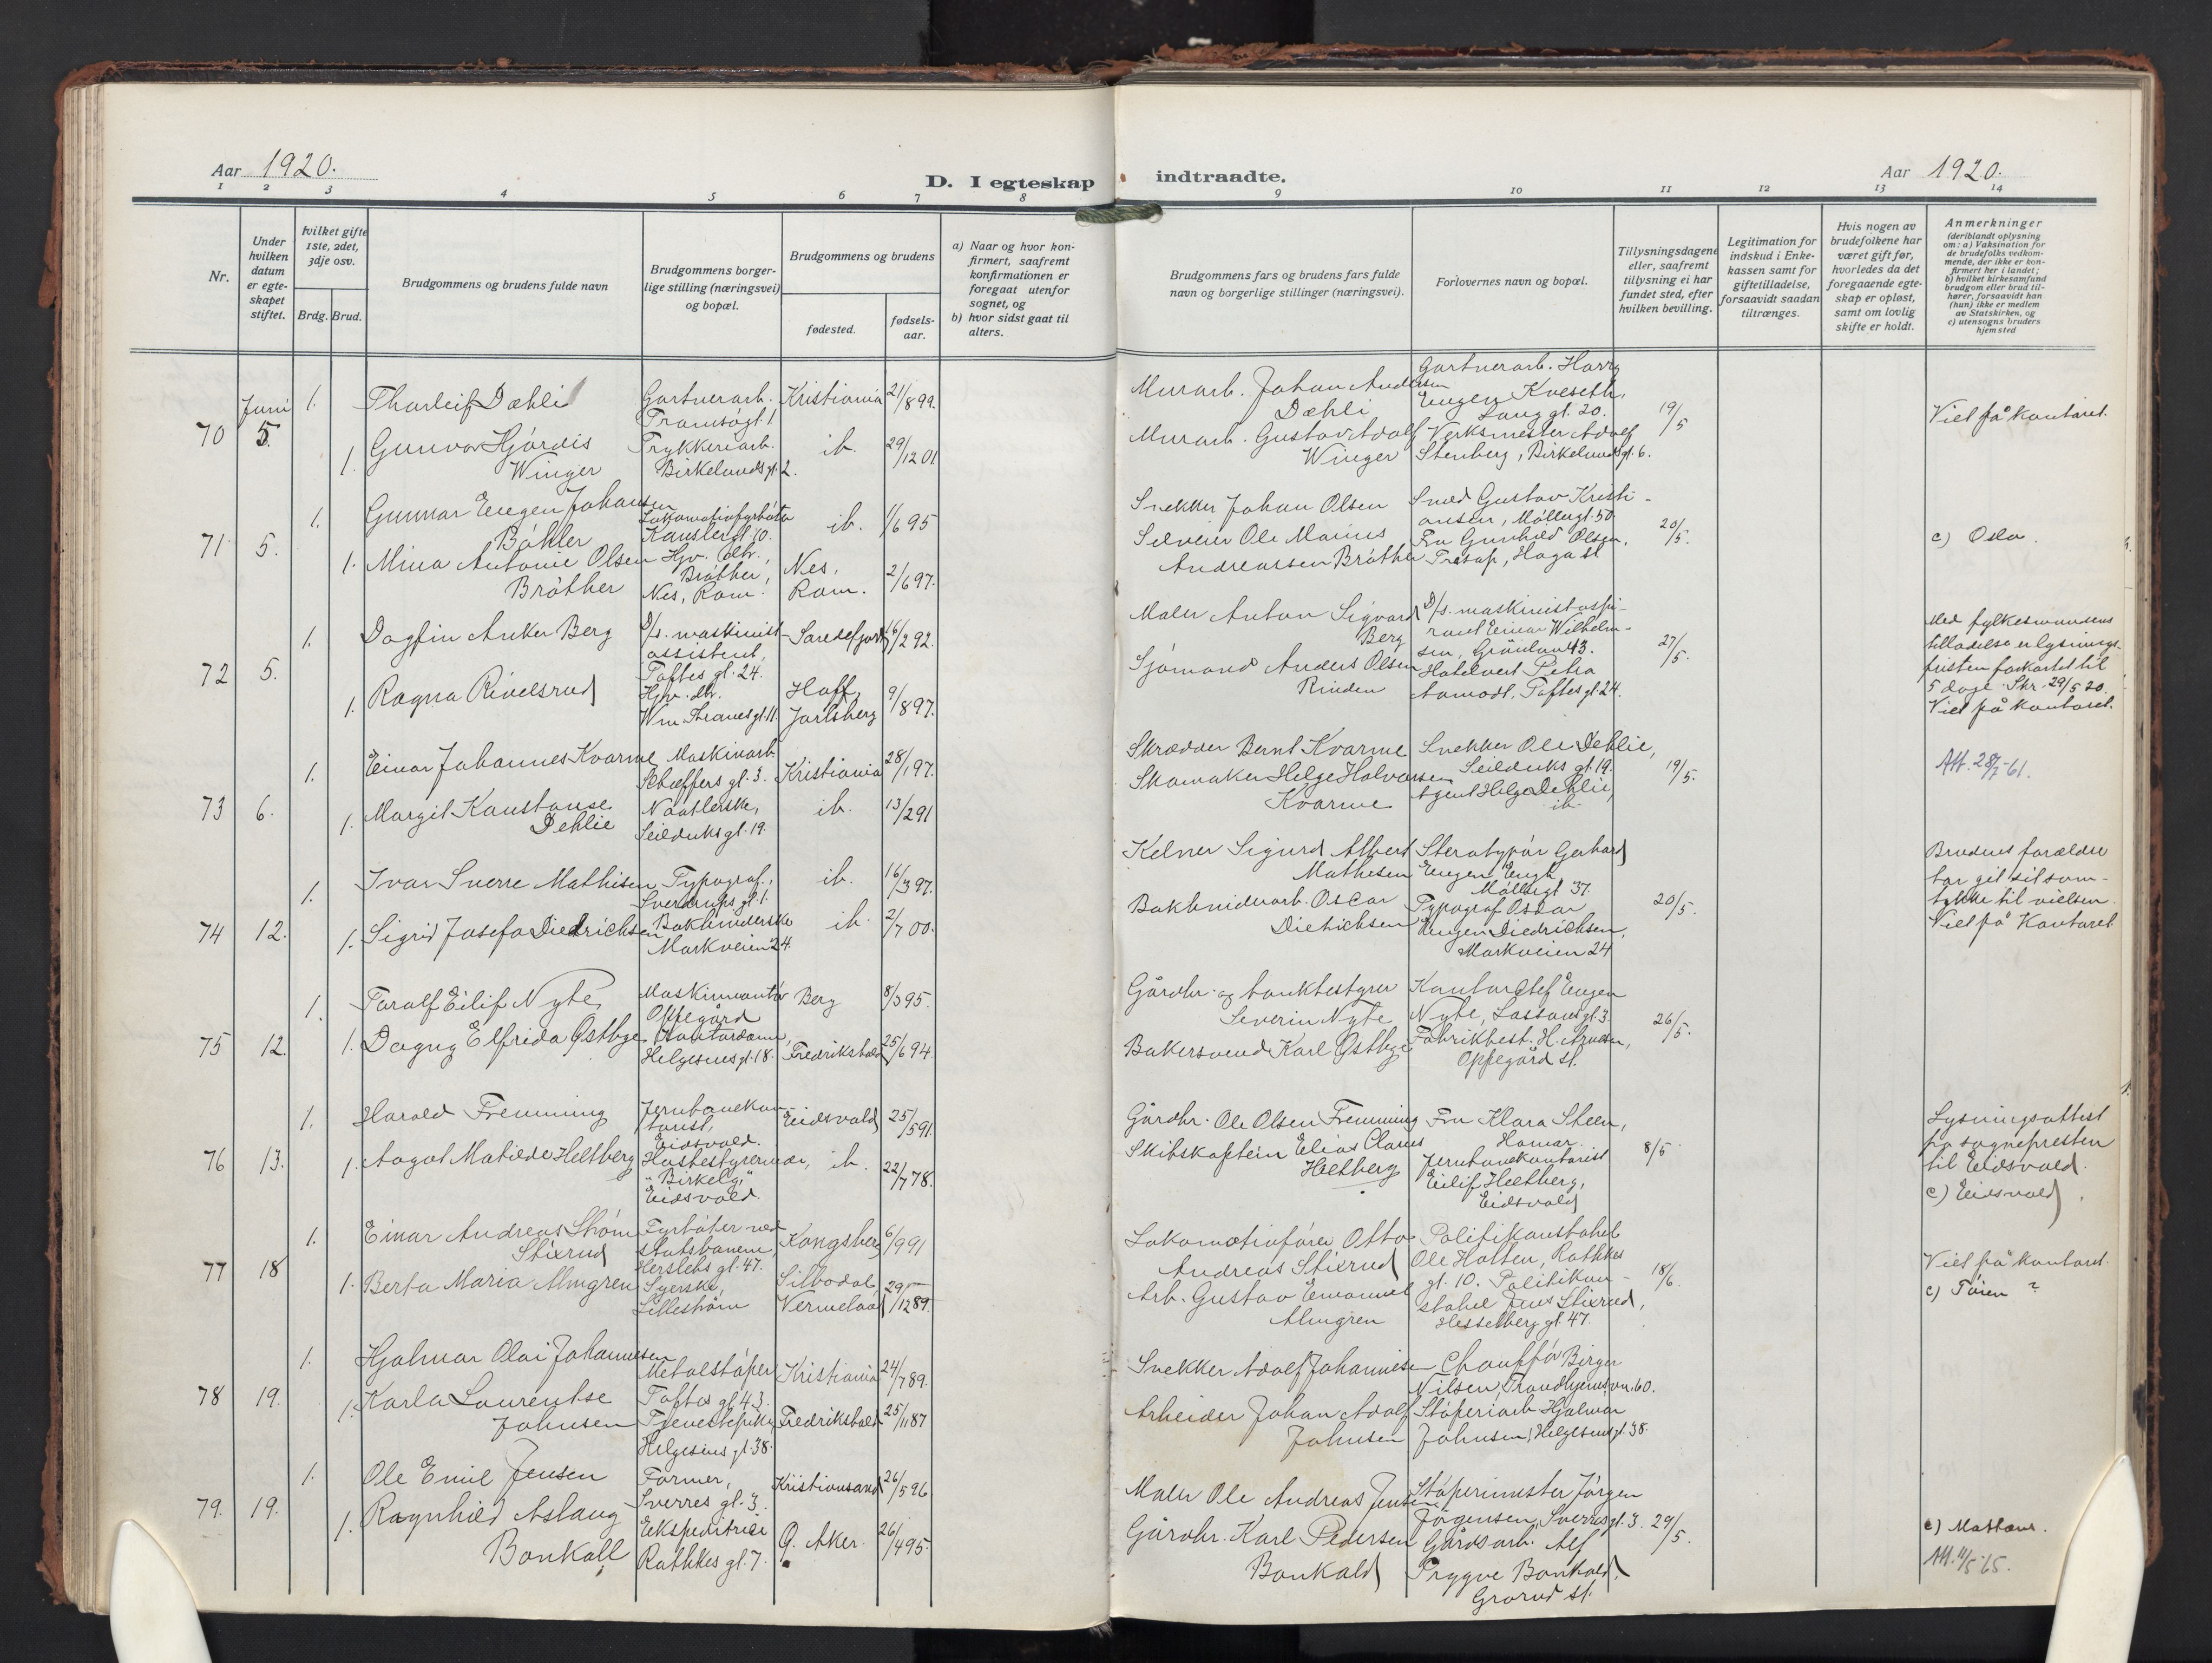 Aar 1920.
D. I egteskap indtraadte.
Aar 1920.
1 2 3 4 5 6 7 8 9 10 11 12 13 14
Nr.
Under hvilken datum er egteskapet stiftet.
hvilket gifte 1ste, 2det, 3dje osv.
Brdg. Brud.
Brudgommens og brudens fulde navn
Brudgommens borgerlige stilling (næringsvei) og bopæl.
Brudgommens og brudens
fødested.
fødselsaar.
a) Naar og hvor konfirmert, saafremt konfirmationen er foregaat utenfor sognet, og
b) hvor sidst gaat til alters.
Brudgommens fars og brudens fars fulde navn og borgerlige stillinger (næringsvei).
Forlovernes navn og bopæl.
Tillysningsdagene eller, saafremt tillysning ei har fundet sted, efter hvilken bevilling.
Legitimation for indskud i Enkekassen samt for giftetilladelse, forsaavidt saadan tiltrænges.
Hvis nogen av brudefolkene har været gift før, hvorledes da det foregaaende egteskap er opløst, samt om lovlig skifte er holdt.
Anmerkninger
(deriblandt oplysning om: a) Vaksination for de brudefolks vedkommende, der ikke er konfirmert her i landet; b) hvilket kirkesamfund brudgom eller brud tilhører, forsaavidt han (hun) ikke er medlem av Statskirken, og c) utensogns bruders hjemsted
70 Juni 5. 1. Thorleif Dæhli Gartnerarb. Tromsøgt. 1 Kristiania 21/8 99.
1. Gunvor Hjørdis Winger Trykkeriarb. Birkelunds gt. 2. ib. 29/12 01
Murarb. Johan Andersen Dæhli
Murarb. Gustav Adolf Winger
Gartnerarb. Harry Eugen Kveseth, Langgt. 20.
Verksmester Adolf Stenberg, Birkelunds gt. 6.
19/5
Viet på kontoret.
71 5. 1. Gunnar Eugen Johansen Bøhler Lokomotivfyrbøter Kanslergt. 10. ib. 1/6 95
1. Mina Antonie Olsen Bråther Hjv. dtr. Bråther, Nes, Rom. Nes, Rom. 2/6 97.
Snekker Johan Olsen
Selveier Ole Marius Andreassen Bråther
Smed Gustav Kristiansen, Møllergt. 50.
Fru Gunhild Olsen, Haga st
20/5.
c) Oslo.
72 5. 1. Dagfin Anker Berg D/s. maskinistassistent, Toftes gt. 24. Sandefjord 16/2 92.
1. Ragna Rivelsrud Hjv. dtr. Wm Thranesgt. 11. Hoff, Jarlsberg 9/8 97.
Maler Anton Sigvard Berg
Sjømand Anders Olsen Rinden
D/s. maskinistaspirant Einar Wilhelmsen, Grønland 43.
Hotelvert Petra Aamodt, Toftes gt. 24.
27/5.
Med fylkesmandens tilladelse er lysningsfristen forkortet til 5 dage. Skr. 29/5 20.
Viet på kontoret.
73 6. 1. Einar Johannes Kvarme Maskinarb. Schæffers gt. 3. Kristiania 28/1 97.
1. Margit Konstanse Dehlie Naatlerske, Seilduks gt. 19. ib. 13/2 91
Skrædder Bernt Kvarme
Skomaker Helge Halvorsen Kvarme
Snekker Ole Dehlie, Seilduks gt. 19.
Agent Helge Dehlie, ib.
19/5.
Att. 28/7-61.
74 12. 1. Ivar Sverre Mathisen Typograf, Sverdrups gt. 1. ib. 16/3 97.
1. Sigrid Josefa Diedrichsen Bokbinderske Markveien 24. ib. 2/7 00.
Kelner Sigurd Albert Mathesen
Bokbinderarb. Oscar Dietrichsen
Sterotypør Gerhard Eugen Engh, Møllergt 37.
Typograf Oskar Eugen Diedrichsen, Markveien 24
20/5.
Brudens forældre har git sit samtykke til vielsen.
Viet på Kontoret.
75 12. 1. Toralf Eilif Nyte Maskinmontør Oppegård Berg 8/3 95.
1. Dagny Elfrida Østbye Kontordame, Helgesens gt. 18. Fredrikshald 25/6 94
Gårdbr. og bankbestyrer Severin Nyte
Bakersvend Karl Østbye
Kontorchef Eugen Nyte, Lassons gt. 3.
Fabrikbest. H. Arnesen, Oppegård st.
26/5.
76 13. 1. Harald Fremming Jernbanekontorist, Eidsvold. Eidsvold 25/5 91
1. Aagot Matilde Heltberg Husbestyrerinde, "Birkelg." Eidsvold. ib. 22/7 78.
Gårdbr. Ole Olsen Fremming
Skibskaptein Elias Claus Heltberg
Fru Klara Steen, Hamar.
Jernbanekontorist Eilif Heltberg, Eidsvold
8/5
Lysningsattest fra sognepresten til Eidsvold.
c) Eidsvold.
77 18 1. Einar Andreas Strøm Stixrud Fyrbøter ved statsbanene, Herslebs gt. 47. Kongsberg 6/9 91
1. Berta Maria Almgren Syerske, Lillestrøm Silbodal, Vermeland 29/12 89.
Lokomotivfører Otto Andreas Stixrud
Arb. Gustav Emanuel Almgren
Politikonstabel Ole Holten, Rathkes gt. 10. Politikonstabel Jens Stixrud, Hesselberg gt. 47.
18/6.
Viet på kontoret.
c) Tøien ?
78 19. 1. Hjalmar Olai Johannesen Metalstøper Toftes gt. 43. Kristiania 24/7 89.
1. Karla Laurentse Johnsen Tjenestepike, Helgesens gt. 38. Fredrikshald 25/11 87
Snekker Adolf Johannesen
Arbeider Johan Adolf Johnsen
Chauffør Birger Nilsen, Trondhjemsvn. 60.
Støperiarb. Hjalmar Johnsen, Helgesens gt. 38.
79. 19. 1. Ole Emil Jensen Former, Sverres gt. 3. Kristiansand 26/5 96
1. Ragnhild Aslaug Bonkall Ekspeditrice Rathkes gt. 7. Ø. Aker. 26/4 95.
Maler Ole Andreas Jensen
Gårdbr. Karl Pedersen Bonkald
Støperimester Jørgen Jørgensen, Sverres gt. 3.
Gårdsarb. Alf Trygve Bonkald, Grorud st.
29/5.
c) Matteus.
Att. 11/5-65.